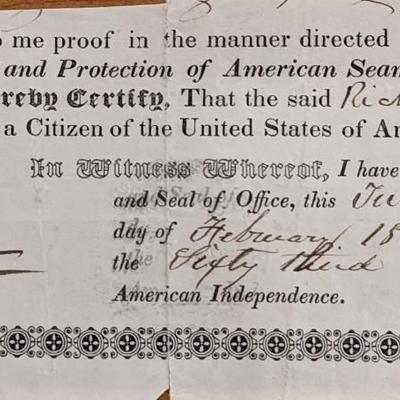 o me proof in the manner directed
and Protection of American Sean
reby Certify, That the said Rich
a Citizen of the United States of An
In Witness Whereof, I have
and Seal of Office, this Tw
day of February. 18
the Sixty third
American Independence.